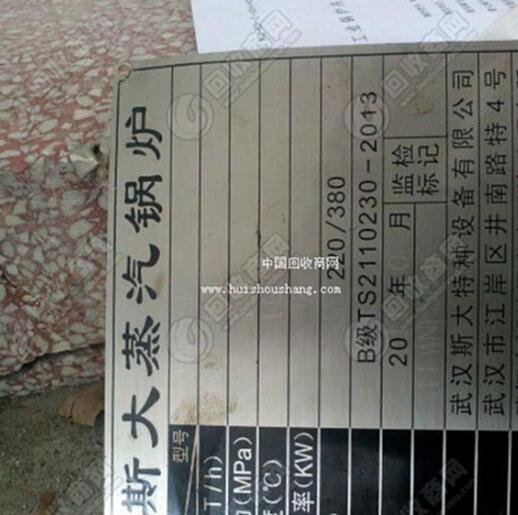 斯大蒸汽锅炉
型号
T/h)
(MPa)
(℃)
率(KW)
220/380
B级TS2110230-2013
20 年 月
监检
标记
武汉斯大特种设备有限公司
武汉市江岸区井南路特4号
中国回收商网
www.huishoushang.com
回收商网